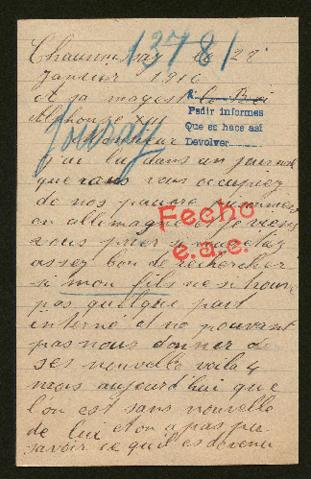 13781
le 22
Janvier 1916
et sa magesté le Roi
Alphonse XIII
A:
Pedir informes
Que se hace así
Devolver
Jouray
Monsieur
j'ai lu dans un journal
que vous vous occupiez
de nos pauvre
en allemagne et je viens
vous prier si vous etiez
assez bon de rechercher
si mon fils ne se trouve
pas quelque part
interné et ne pouvant
pas nous donner de
ses nouvelle voila 4
mois aujourd'hui que
l'on est sans nouvelle
de lui et on a pas pu
savoir ce qu'il es devenu
Fecho
e.a.e.